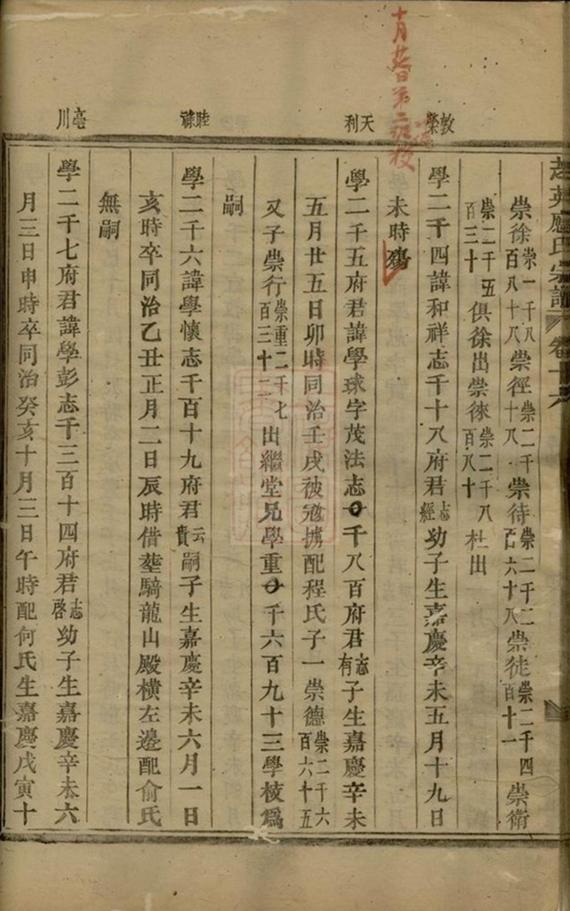 芝英應氏宗譜 卷十六
崇徐崇一千八百八十八崇徑崇二千十八崇待崇二千二百六十八崇徒崇二千四百十一崇衛
崇二千五百三十俱徐出崇徠崇二千八百八十杜出
學二千四諱和祥志千十八府君志經幼子生嘉慶辛未五月十九日
未時殤
學二千五府君諱學球字茂法志千八百府君志有子生嘉慶辛未
五月廿五日卯時同治壬戌被寇擄配程氏子一崇德崇二千六百六十五
又子崇行崇二千七百三十二出繼堂兄學重千六百九十三學校爲
嗣
學二千六諱學懷志千百十九府君云貴嗣子生嘉慶辛未六月一日
亥時卒同治乙丑正月二日辰時借塟騎龍山殿橫左邊配俞氏
無嗣
學二千七府君諱學彭志千三百十四府君志啓幼子生嘉慶辛未六
月三日申時卒同治癸亥十月三日午時配何氏生嘉慶戊寅十
教榮
天利
睦祿
亳川